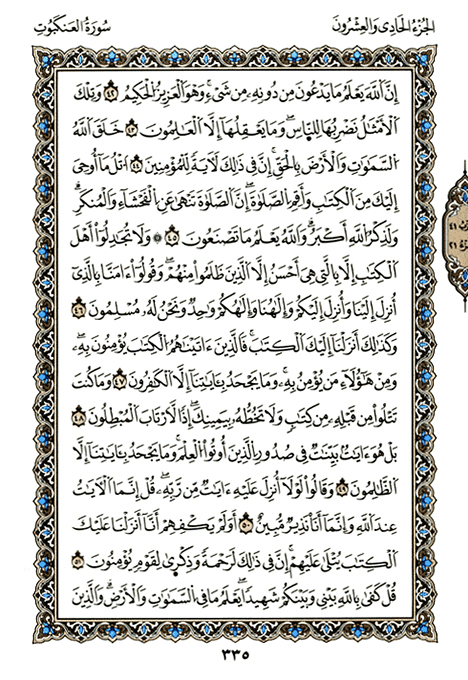 الجُزْءُ الحَادِي وَالعِشْرُونَ سُورَةُ العَنكَبُوتِ
إِنَّ ٱللَّهَ يَعْلَمُ مَا يَدْعُونَ مِن دُونِهِۦ مِن شَىْءٍ ۚ وَهُوَ ٱلْعَزِيزُ ٱلْحَكِيمُ ٤٢ وَتِلْكَ
ٱلْأَمْثَٰلُ نَضْرِبُهَا لِلنَّاسِ ۖ وَمَا يَعْقِلُهَآ إِلَّا ٱلْعَٰلِمُونَ ٤٣ خَلَقَ ٱللَّهُ
ٱلسَّمَٰوَٰتِ وَٱلْأَرْضَ بِٱلْحَقِّ ۚ إِنَّ فِى ذَٰلِكَ لَءَايَةً لِّلْمُؤْمِنِينَ ٤٤ ٱتْلُ مَآ أُوحِىَ
إِلَيْكَ مِنَ ٱلْكِتَٰبِ وَأَقِمِ ٱلصَّلَوٰةَ ۖ إِنَّ ٱلصَّلَوٰةَ تَنْهَىٰ عَنِ ٱلْفَحْشَآءِ وَٱلْمُنكَرِ ۗ
وَلَذِكْرُ ٱللَّهِ أَكْبَرُ ۗ وَٱللَّهُ يَعْلَمُ مَا تَصْنَعُونَ ٤٥ ۞ وَلَا تُجَٰدِلُوٓا۟ أَهْلَ
ٱلْكِتَٰبِ إِلَّا بِٱلَّتِى هِىَ أَحْسَنُ إِلَّا ٱلَّذِينَ ظَلَمُوا۟ مِنْهُمْ ۖ وَقُولُوٓا۟ ءَامَنَّا بِٱلَّذِىٓ
أُنزِلَ إِلَيْنَا وَأُنزِلَ إِلَيْكُمْ وَإِلَٰهُنَا وَإِلَٰهُكُمْ وَٰحِدٌ وَنَحْنُ لَهُۥ مُسْلِمُونَ ٤٦
وَكَذَٰلِكَ أَنزَلْنَآ إِلَيْكَ ٱلْكِتَٰبَ ۚ فَٱلَّذِينَ ءَاتَيْنَٰهُمُ ٱلْكِتَٰبَ يُؤْمِنُونَ بِهِۦ ۖ
وَمِنْ هَٰٓؤُلَآءِ مَن يُؤْمِنُ بِهِۦ ۚ وَمَا يَجْحَدُ بِـَٔايَٰتِنَآ إِلَّا ٱلْكَٰفِرُونَ ٤٧ وَمَا كُنتَ
تَتْلُوا۟ مِن قَبْلِهِۦ مِن كِتَٰبٍ وَلَا تَخُطُّهُۥ بِيَمِينِكَ ۖ إِذًا لَّٱرْتَابَ ٱلْمُبْطِلُونَ ٤٨
بَلْ هُوَ ءَايَٰتٌۢ بَيِّنَٰتٌ فِى صُدُورِ ٱلَّذِينَ أُوتُوا۟ ٱلْعِلْمَ ۚ وَمَا يَجْحَدُ بِـَٔايَٰتِنَآ إِلَّا
ٱلظَّٰلِمُونَ ٤٩ وَقَالُوا۟ لَوْلَآ أُنزِلَ عَلَيْهِ ءَايَٰتٌ مِّن رَّبِّهِۦ ۖ قُلْ إِنَّمَا ٱلْءَايَٰتُ
عِندَ ٱللَّهِ وَإِنَّمَآ أَنَا۠ نَذِيرٌ مُّبِينٌ ٥٠ أَوَلَمْ يَكْفِهِمْ أَنَّآ أَنزَلْنَا عَلَيْكَ
ٱلْكِتَٰبَ يُتْلَىٰ عَلَيْهِمْ ۚ إِنَّ فِى ذَٰلِكَ لَرَحْمَةً وَذِكْرَىٰ لِقَوْمٍ يُؤْمِنُونَ ٥١
قُلْ كَفَىٰ بِٱللَّهِ بَيْنِى وَبَيْنَكُمْ شَهِيدًا ۖ يَعْلَمُ مَا فِى ٱلسَّمَٰوَٰتِ وَٱلْأَرْضِ ۗ وَٱلَّذِينَ
٣٣٥